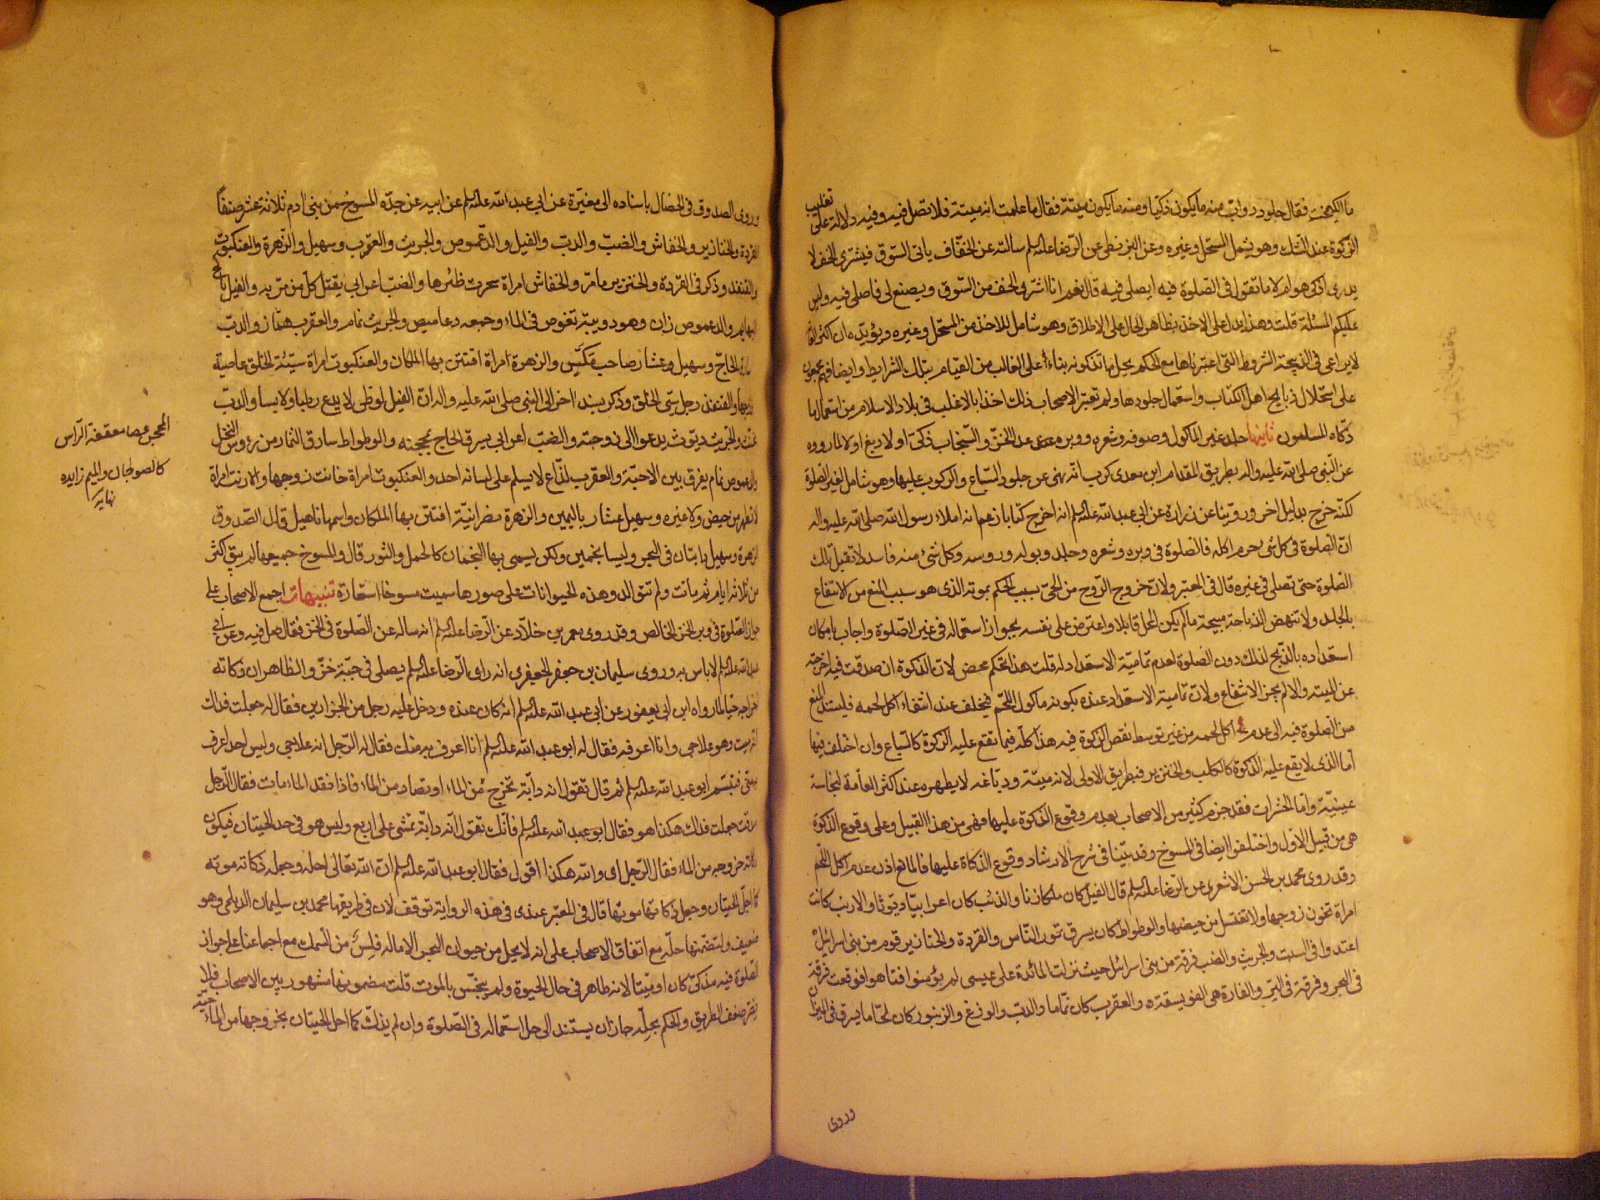 ما الكيمخت فقال جلود دواب منه ما يكون ذكيا ومنه ما يكون ميتة فقال ما علمت انه ميتة فلا تصل فيه وفيه دلالة على تغليب
الذكوة عند الشك وهو يشمل المستحل وغيره وعن البزنطي عن الرضا عليه السلم سالته عن الخفاف ياتي السوق فيشترى الخف لا
يدرى اذكى هو ام لا ما تقول في الصلوة فيه ايصلى فيه قال نعم انا اشترى الخف من السوق ويصنع لى فاصلى فيه وليس
عليكم المسئلة قلت وهذا يدل على الاخذ بظاهر الحال على الاطلاق وهو شامل للاخذ من المستحل وغيره ويؤيده ان اكثر
لا يراعى في الذبيحة الشروط التى اعتبرناها مع الحكم بحل ما تذكونه بناء على الغالب من القيام بتلك الشرايط وايضا فهم مجمعون
على استحلال ذبايح اهل الكتاب واستعمال جلودها ولم تعتبر الاصحاب ذلك اخذا بالاغلب في بلاد الاسلام من استعمال ما
ذكاه المسلمون ثانيها جلد غير الماكول وصوفه وشعره ووبره عدى الخز والسنجاب ذكى او لا دبغ او لا لما رووه
عن النبي صلى الله عليه واله بطريق المقدام ابن معدى كرب انه نهى عن جلود السباع والركوب عليها وهو شامل لغير الصلوة
لكنه خرج بدليل اخر وروينا عن زرارة عن ابي عبد الله عليه السلم انه اخرج كتابا زعم انه املاء رسول الله صلى الله عليه واله
ان الصلوة في كل شئ حرم اكله فالصلوة في وبره وشعره وجلده وبوله وروسه وكل شئ منه فاسد لا تقبل تلك
الصلوة حتى تصلى في غيره قال في المعتبر ولان خروج الروح من الحى سبب الحكم بموته الذى هو سبب المنع من الانتفاع
بالجلد ولا تنهض الذباحة مبيحة ما لم يكن المحل قابلا واعترض على نفسه بجواز استعماله في غير الصلوة واجاب بامكان
استعداده بالذبح لذلك دون الصلوة لعدم تمامية الاستعداد له قلت هذا تحكم محض لان الذكوة ان صدقت فيه اخرجته
عن الميتة والا لم يجز الانتفاع ولان تمامية الاستعداد عنده بكونه ماكول اللحم فيتخلف عند انتفاء اكل لحمه فليستند المنع
من الصلوة فيه الى عدم اكل لحمه من غير توسط نقص الذكوة فيه هذا كله فيما تقع عليه الذكوة كالسباع وان اختلف فيها
اما الذى لا يقع عليه الذكوة كالكلب والخنزير فبطريق الاولى لانه ميتة ودباغه لا يطهره عند اكثر العامة لنجاسة
عينية واما الحشرات فقد جزم كثير من الاصحاب بعدم وقوع الذكوة عليها فهى من هذا القبيل وعلى وقوع الذكوة
هى من قبيل الاول واختلفوا ايضا في المسوخ وقد بينا في شرح الارشاد وقوع الذكاة عليها فالمانع اذن عدم اكل اللحم
وقد روى محمد بن الحسن الاشعرى عن الرضا عليه السلم قال الفيل كان ملكا زناء والذئب كان اعرابيا ديوثا والارنب كانت
امراة تخون زوجها ولا تغتسل من حيضها والوطواط كان يسرق تمور الناس والقردة والخنازير قوم من بنى اسرائيل
اعتدوا في السبت والجريث والضب فرقة من بنى اسرائيل حيث نزلت المائدة على عيسى لم يؤمنوا فتاهوا فوقعت فرقة
في البحر وفرقة في البر والفارة هى الفويسقة والعقرب كان نماما والدب والوزغ والزنبور كان لحاما يسرق في الميزان
وروى
وروى الصدوق في الخصال باسناده الى مغيرة عن ابي عبد الله عليه السلم عن ابيه عن جده المسوخ من بنى ادم ثلاثة عشر صنفا
القردة والخنازير والخفاش والضب والدب والفيل والدعموص والجريث والعقرب وسهيل والزهرة والعنكبوت
والقنفذ وذكر في القردة والخنزير ما مر والخفاش امراة سحرت ظئرها والضب اعرابي يقتل كل من مر به والفيل ناكح
البهايم والدعموص زان وهو دويبة تغوص في الماء وجمعه دعاميص والجريث نمام والعقرب هماز والدب
سارق الحاج وسهيل عشار صاحب مكس والزهرة امراة افتتن بها الملكان والعنكبوت امراة سيئة الخلق عاصية
لزوجها والقنفذ رجل سئ الخلق وذكر بسند اخر الى النبي صلى الله عليه واله ان الفيل لوطى لا يدع رطبا ولا يابسا والدب
مخنث والجريث ديوث يدعو الى زوجته والضب اعرابي يسرق الحاج بمحجنه والوطواط سارق الثمار من رؤس النخل
والدعموص نمام يفرق بين الاحبة والعقرب لذاع لا يسلم على لسانه احد والعنكبوت امراة خانت زوجها والارنب امراة
لا تطهر من حيض ولا غيره وسهيل عشار باليمين والزهرة نصرانية افتتن بها الملكان واسمها ناهيل قال الصدوق
الزهرة وسهيل دابتان في البحر وليسا نجمين ولكن يسمى بها النجمان كالحمل والثور قال والمسوخ جميعها لم يبق اكثر
من ثلاثة ايام ثم ماتت ولم تتوالد وهذه الحيوانات على صورها سميت مسوخا استعارة تنبيهات اجمع الاصحاب على
جواز الصلوة في وبر الخز الخالص وقد روى معمر بن خلاد عن الرضا عليه السلم انه ساله عن الصلوة في الخز فقال صل فيه وعن ابي
عبد الله عليه السلم لا باس به وروى سليمان بن جعفر الجعفرى انه راى الرضا عليه السلم يصلى في جبة خز والظاهر ان ذكاته
اخراجه حيا لما رواه ابن ابي يعفور عن ابي عبد الله عليه السلم انه كان عنده ودخل عليه رجل من الخزازين فقال له جعلت فداك
انه ميت وهو علاجى وانا اعرفه فقال له ابو عبد الله عليه السلم انا اعرف به منك فقال له الرجل انه علاجى وليس احد اعرف
به منى فتبسم ابو عبد الله عليه السلم ثم قال تقول انه دابة تخرج من الماء او تصاد من الماء فاذا فقد الماء مات فقال الرجل
صدقت جعلت فداك هكذا هو فقال ابو عبد الله عليه السلم فانك تقول انه دابة تمشى على اربع وليس هو في حد الحيتان فيكون
ذكاته خروجه من الماء فقال الرجل اى والله هكذا اقول فقال ابو عبد الله عليه السلم ان الله تعالى احله وجعل ذكاته موته
كما احل الحيتان وجعل ذكاتها موتها قال في المعتبر عندى في هذه الرواية توقف لان في طريقها محمد بن سليمان الديلمى وهو
ضعيف ولتضمنها حله مع اتفاق الاصحاب على انه لا يحل من حيوان البحر الا ما له فلس من السمك مع اجماعنا على جواز
الصلوة فيه مذكى كان او ميتا لانه طاهر في حال الحيوة ولم ينجس بالموت قلت مضمونها مشهور بين الاصحاب فلا
يضر ضعف الطريق والحكم بحله جاز ان يستند الى حل استعماله في الصلوة وان لم يذك كما احل الحيتان بخروجها من الماء حية
المحجن عصا معقفة الراس
كالصولجان والميم زايدة
نهاية